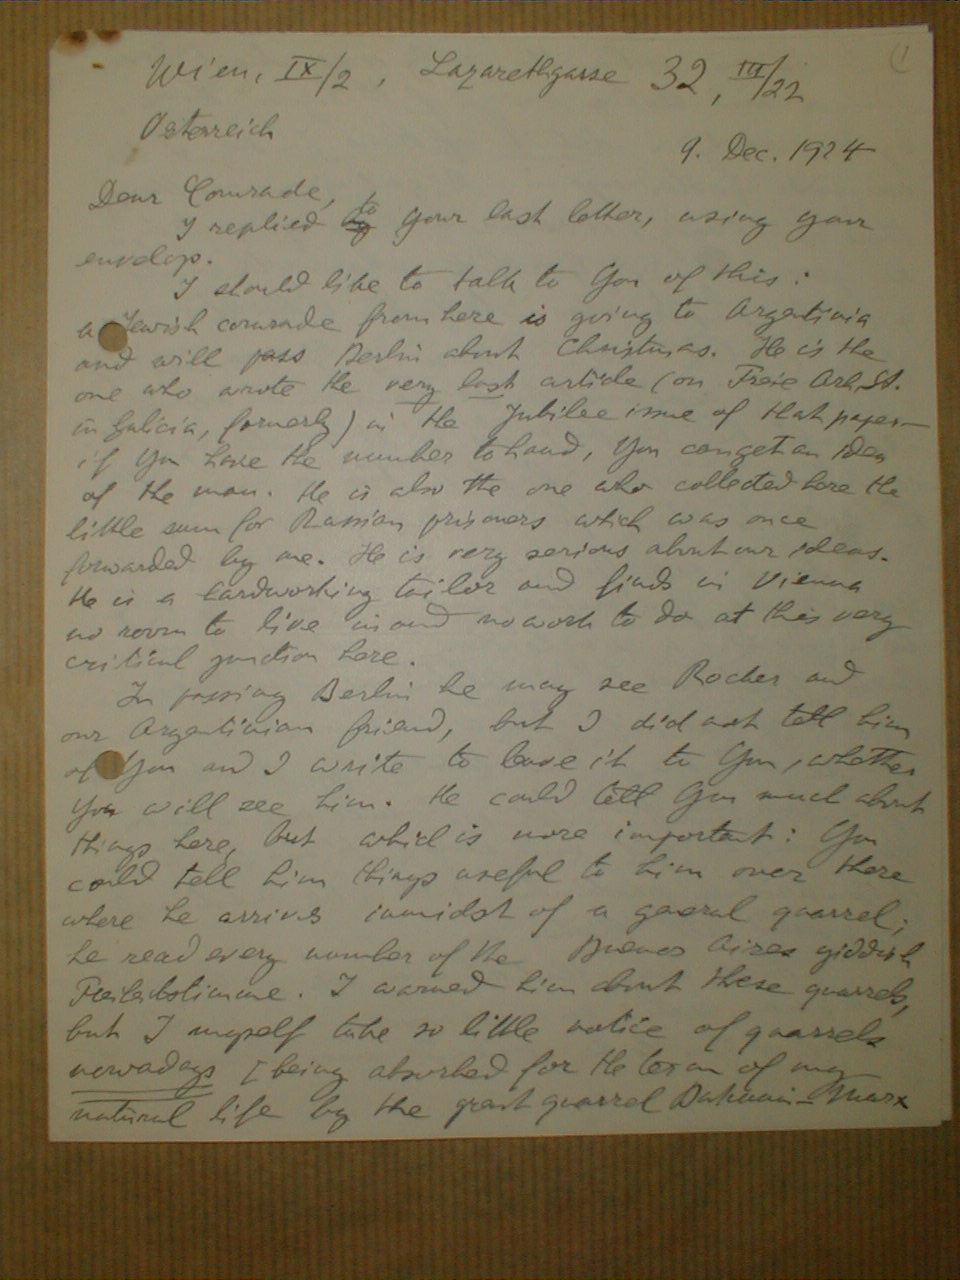 Wien, IX/2, Lazarethgasse 32, III/22
Österreich
9. Dec. 1924
Dear Comrade,
I replied to Your last letter, using your
envelop.
I should like to talk to You of this:
a Jewish comrade from here is going to Argentinia
and will pass Berlin about Christmas. He is the
one who wrote the very last article (on Freie Arb. St.
in Galicia, formerly) in the Jubilee issue of that paper –
if You have the number to hand, You can get an idea
of the man. He is also the one who collected here the
little sum for Russian prisoners which was once
forwarded by me. He is very serious about our ideas.
He is a hardworking tailor and finds in Vienna
no room to live in and no work to do at this very
critical junction here.
In passing Berlin he may see Rocker and
our Argentinian friend, but I did not tell him
of You and I write to leave it to You, whether
You will see him. He could tell You much about
things here, but which is more important: You
could tell him things useful to him over there
where he arrives inmidst of a general quarrel;
he read every number of the Buenos Aires yiddish
. I warned him about these quarrels,
but I myself take so little notice of quarrels
nowadays [being absorbed for the term of my
natural life by the great quarrel Bakunin-Marx